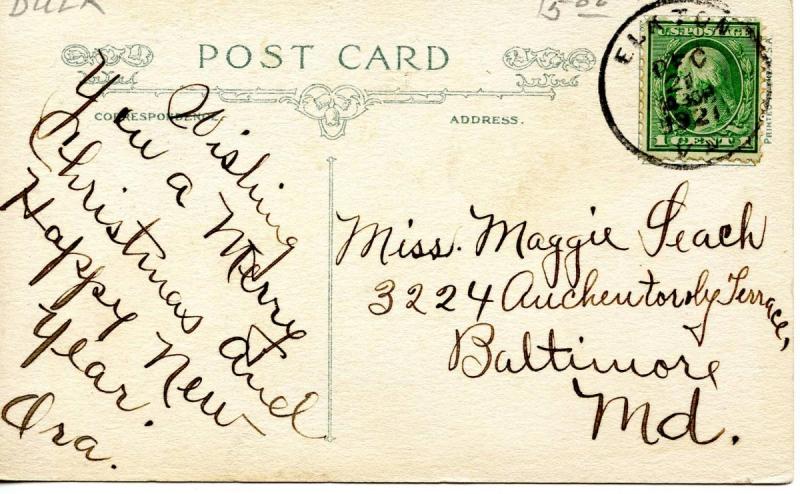 BULK
15-00
POST CARD
CORRESPONDENCE
ADDRESS.
Wishing
You a Merry
Christmas and
Happy New
Year.
Ora.
Miss. Maggie Leach
3224 Auchentoroly Terrace,
Baltimore
Md.
ELKTON
DEC
21
1921
VA
U.S. POSTAGE
1 CENT 1